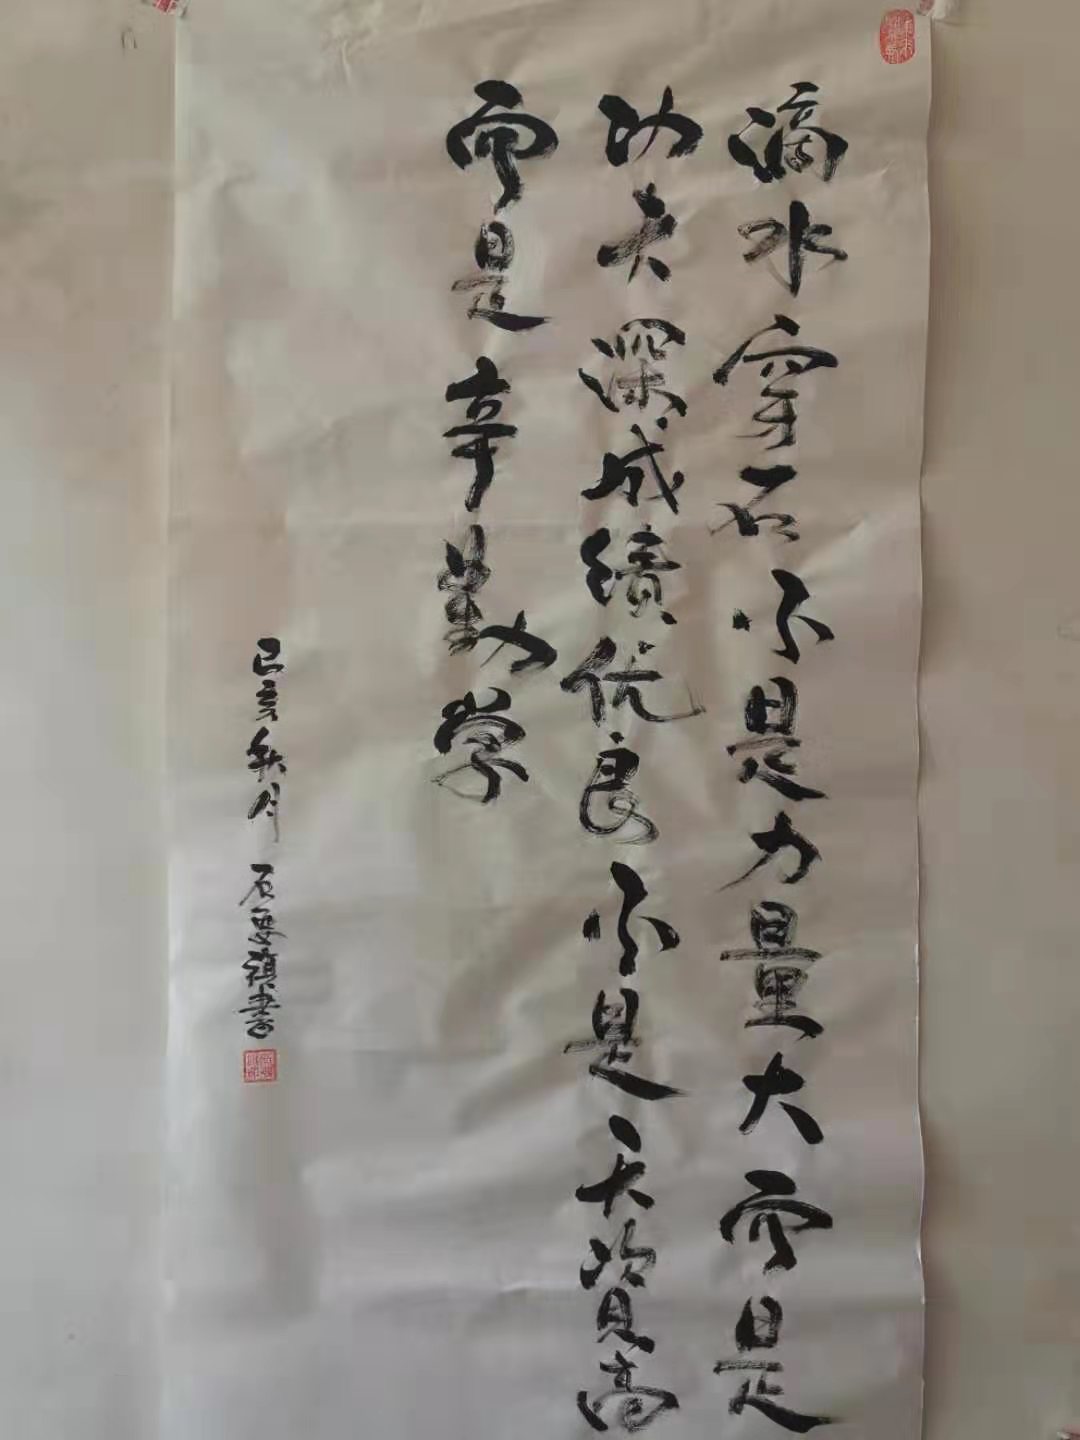 滴水穿石不是力量大而是
功夫深成绩优良不是天资高
而是辛勤学
己亥秋月 石 书